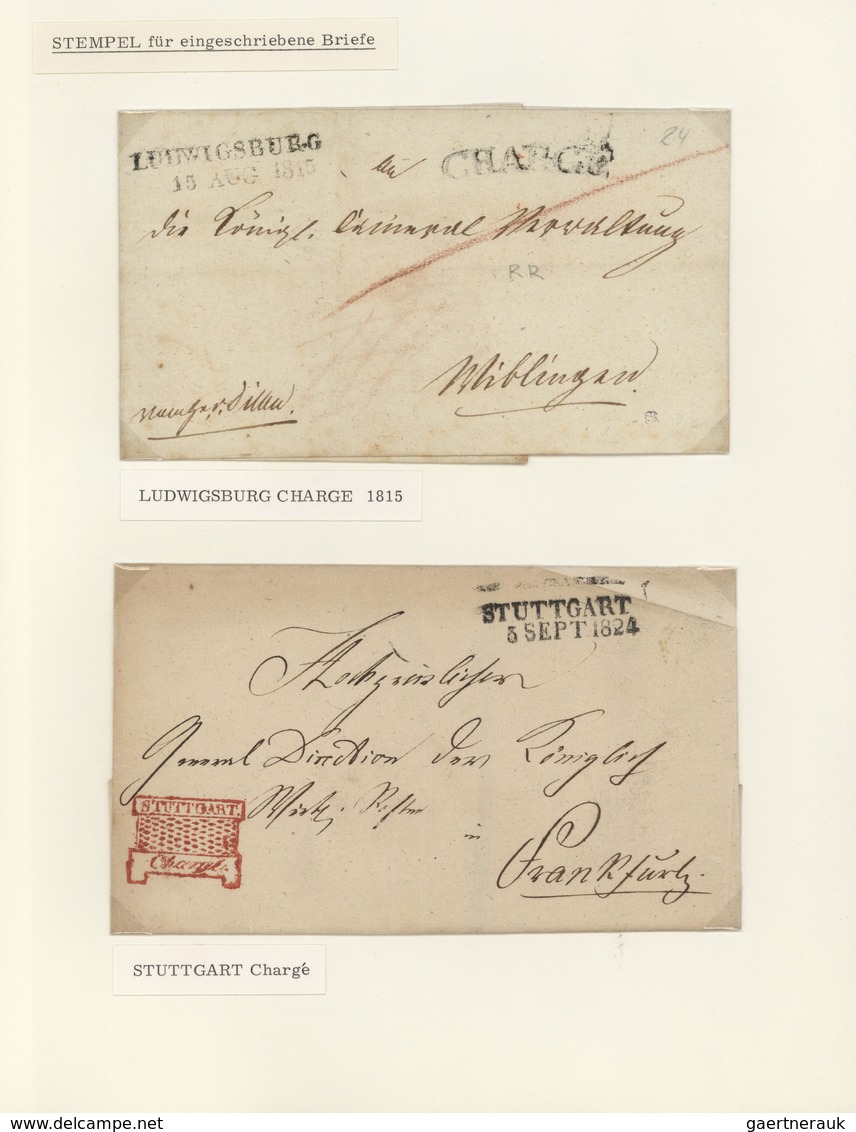 STEMPEL für eingeschriebene Briefe
LUDWIGSBURG
15 AUG 1815
CHARGÉ.
24
An
die Königl. Cameral Verwaltung
RR
Wiblingen.
LUDWIGSBURG CHARGE 1815
STUTTGART
5 SEPT. 1824
Hochpreislicher
General Direction der Königlich
STUTTGART.
Chargé.
in
Frankfurt.
STUTTGART Chargé
gaertnerauk